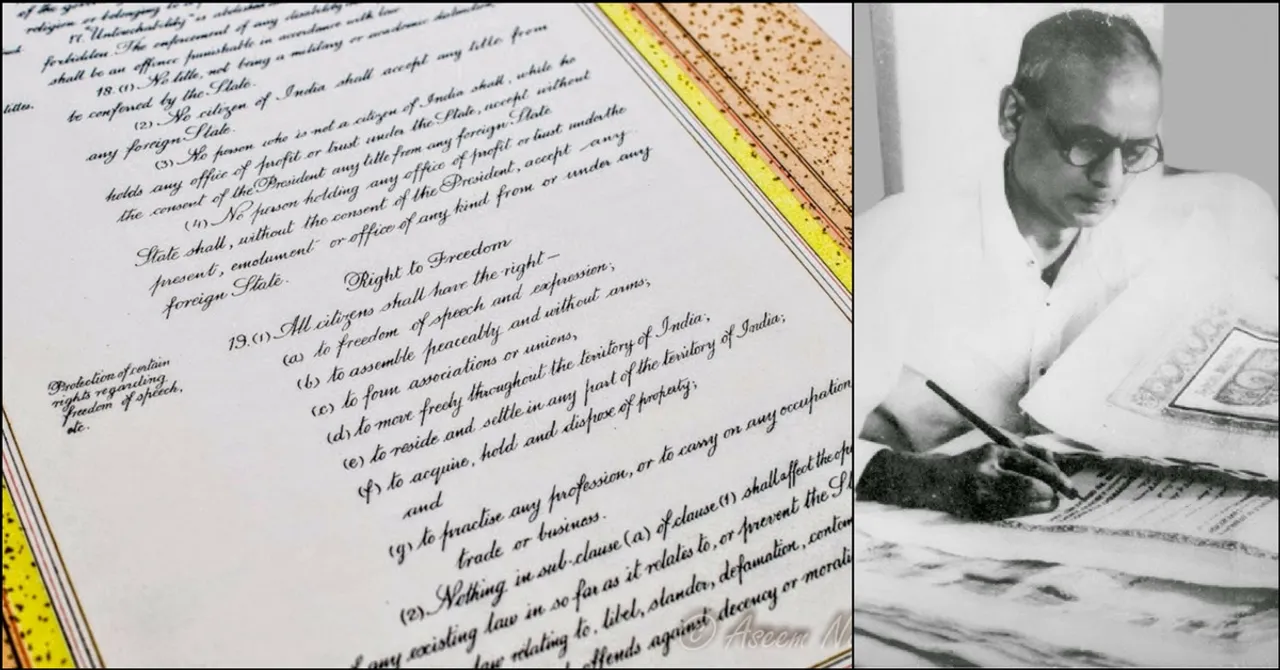 of the
religion or belonging to
17. "Untouchability" is abolished
forbidden. The enforcement of any disability
shall be an offence punishable in accordance with law.
18. (1) No title, not being a military or academic distinction,
be conferred by the State.
titles.
(2) No citizen of India shall accept any title from
any foreign State.
(3) No person who is not a citizen of India shall, while he
holds any office of profit or trust under the State, accept without
the consent of the President any title from any foreign State
(4) No person holding any office of profit or trust under the
State shall, without the consent of the President, accept any
present, emolument or office of any kind from or under any
foreign State.
Right to Freedom
Protection of certain
rights regarding
freedom of speech,
etc.
19. (1) All citizens shall have the right —
(a) to freedom of speech and expression;
(b) to assemble peaceably and without arms;
(c) to form associations or unions;
(d) to move freely throughout the territory of India;
(e) to reside and settle in any part of the territory of India;
(f) to acquire, hold and dispose of property;
and
(g) to practise any profession, or to carry on any occupation
trade or business.
(2) Nothing in sub-clause (a) of clause (1) shall affect the
any existing law in so far as it relates to, or prevent the
any law relating to, libel, slander, defamation,
offends against decency or
© Aseem